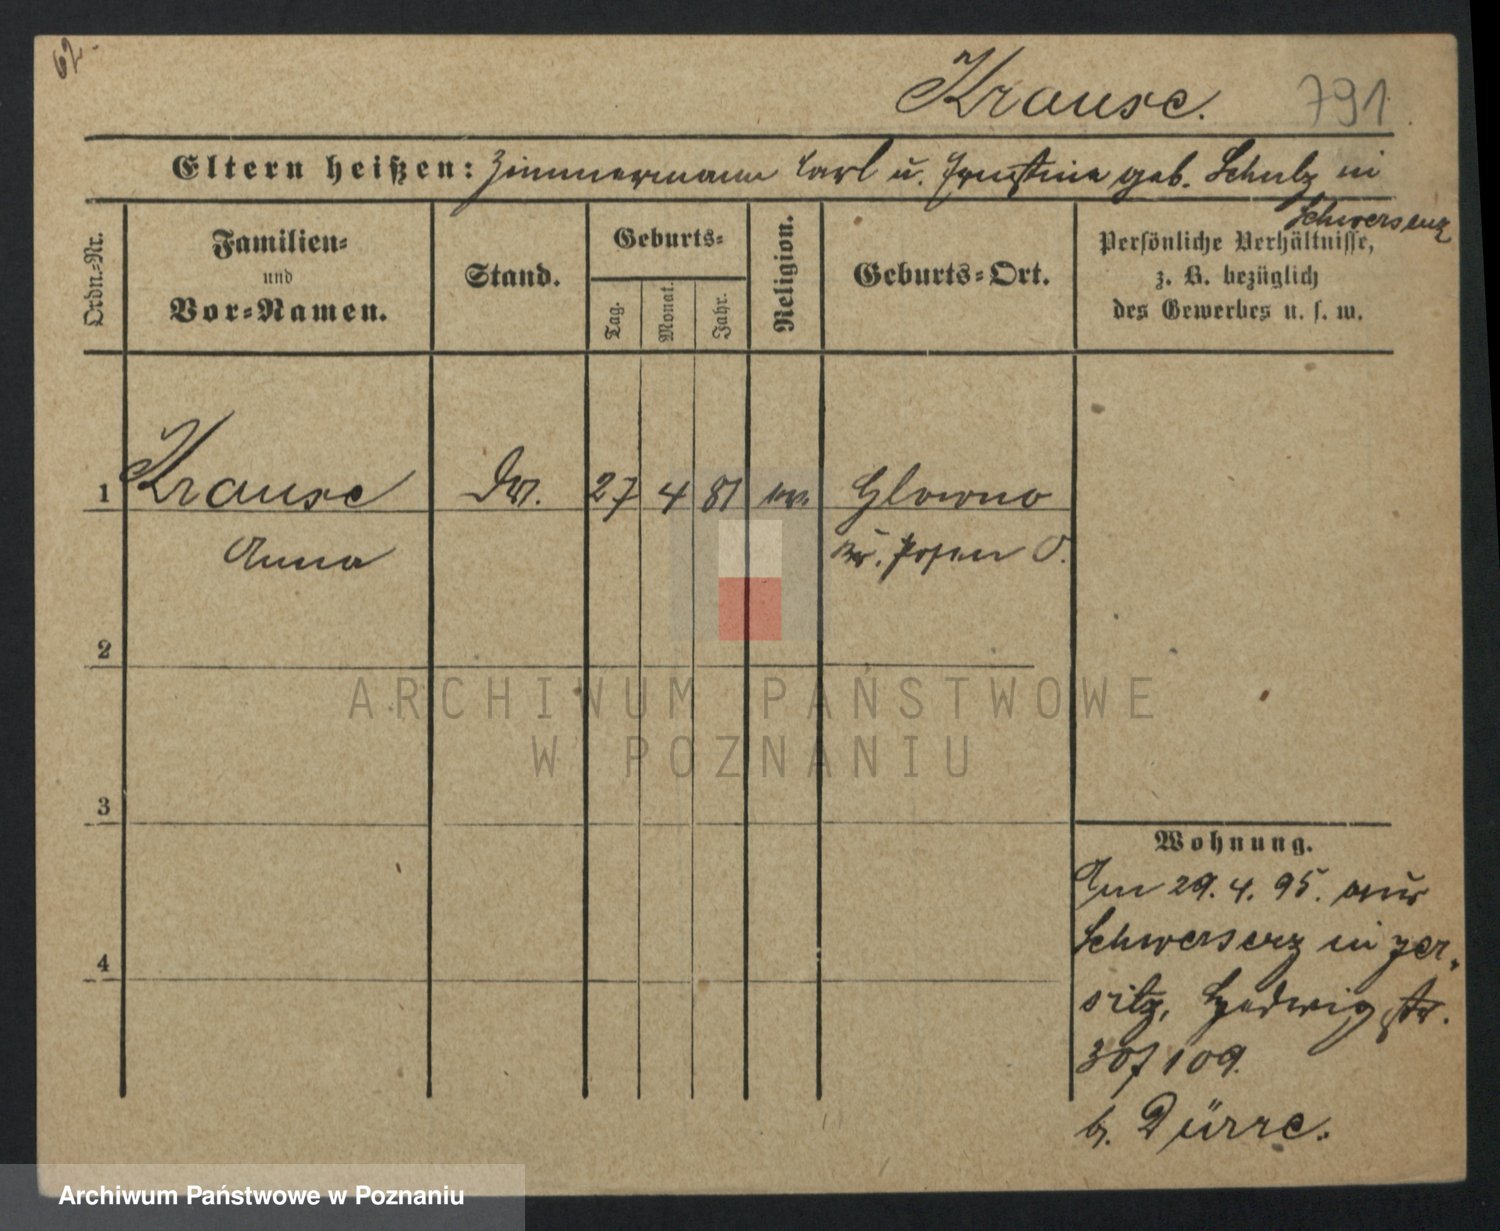 62.
Krause. 791
Eltern heißen: Zimmermann Carl u. Ernstine geb. Schulz in
Schwersenz
Ordn.-Nr.
Familien-
und
Vor-Namen.
Stand.
Geburts-
Tag.
Monat.
Jahr.
Religion.
Geburts-Ort.
Persönliche Verhältnisse,
z. B. bezüglich
des Gewerbes u. s. w.
1 Krause 27 4 81 ev. Glowno
Anna Kr. Posen O.
2
ARCHIWUM PAŃSTWOWE
W POZNANIU
3
4
Wohnung.
Am 29.4.95. aus
Schwersenz in Jer-
sitz, Hedwigstr.
307/109.
b. Dürre.
Archiwum Państwowe w Poznaniu